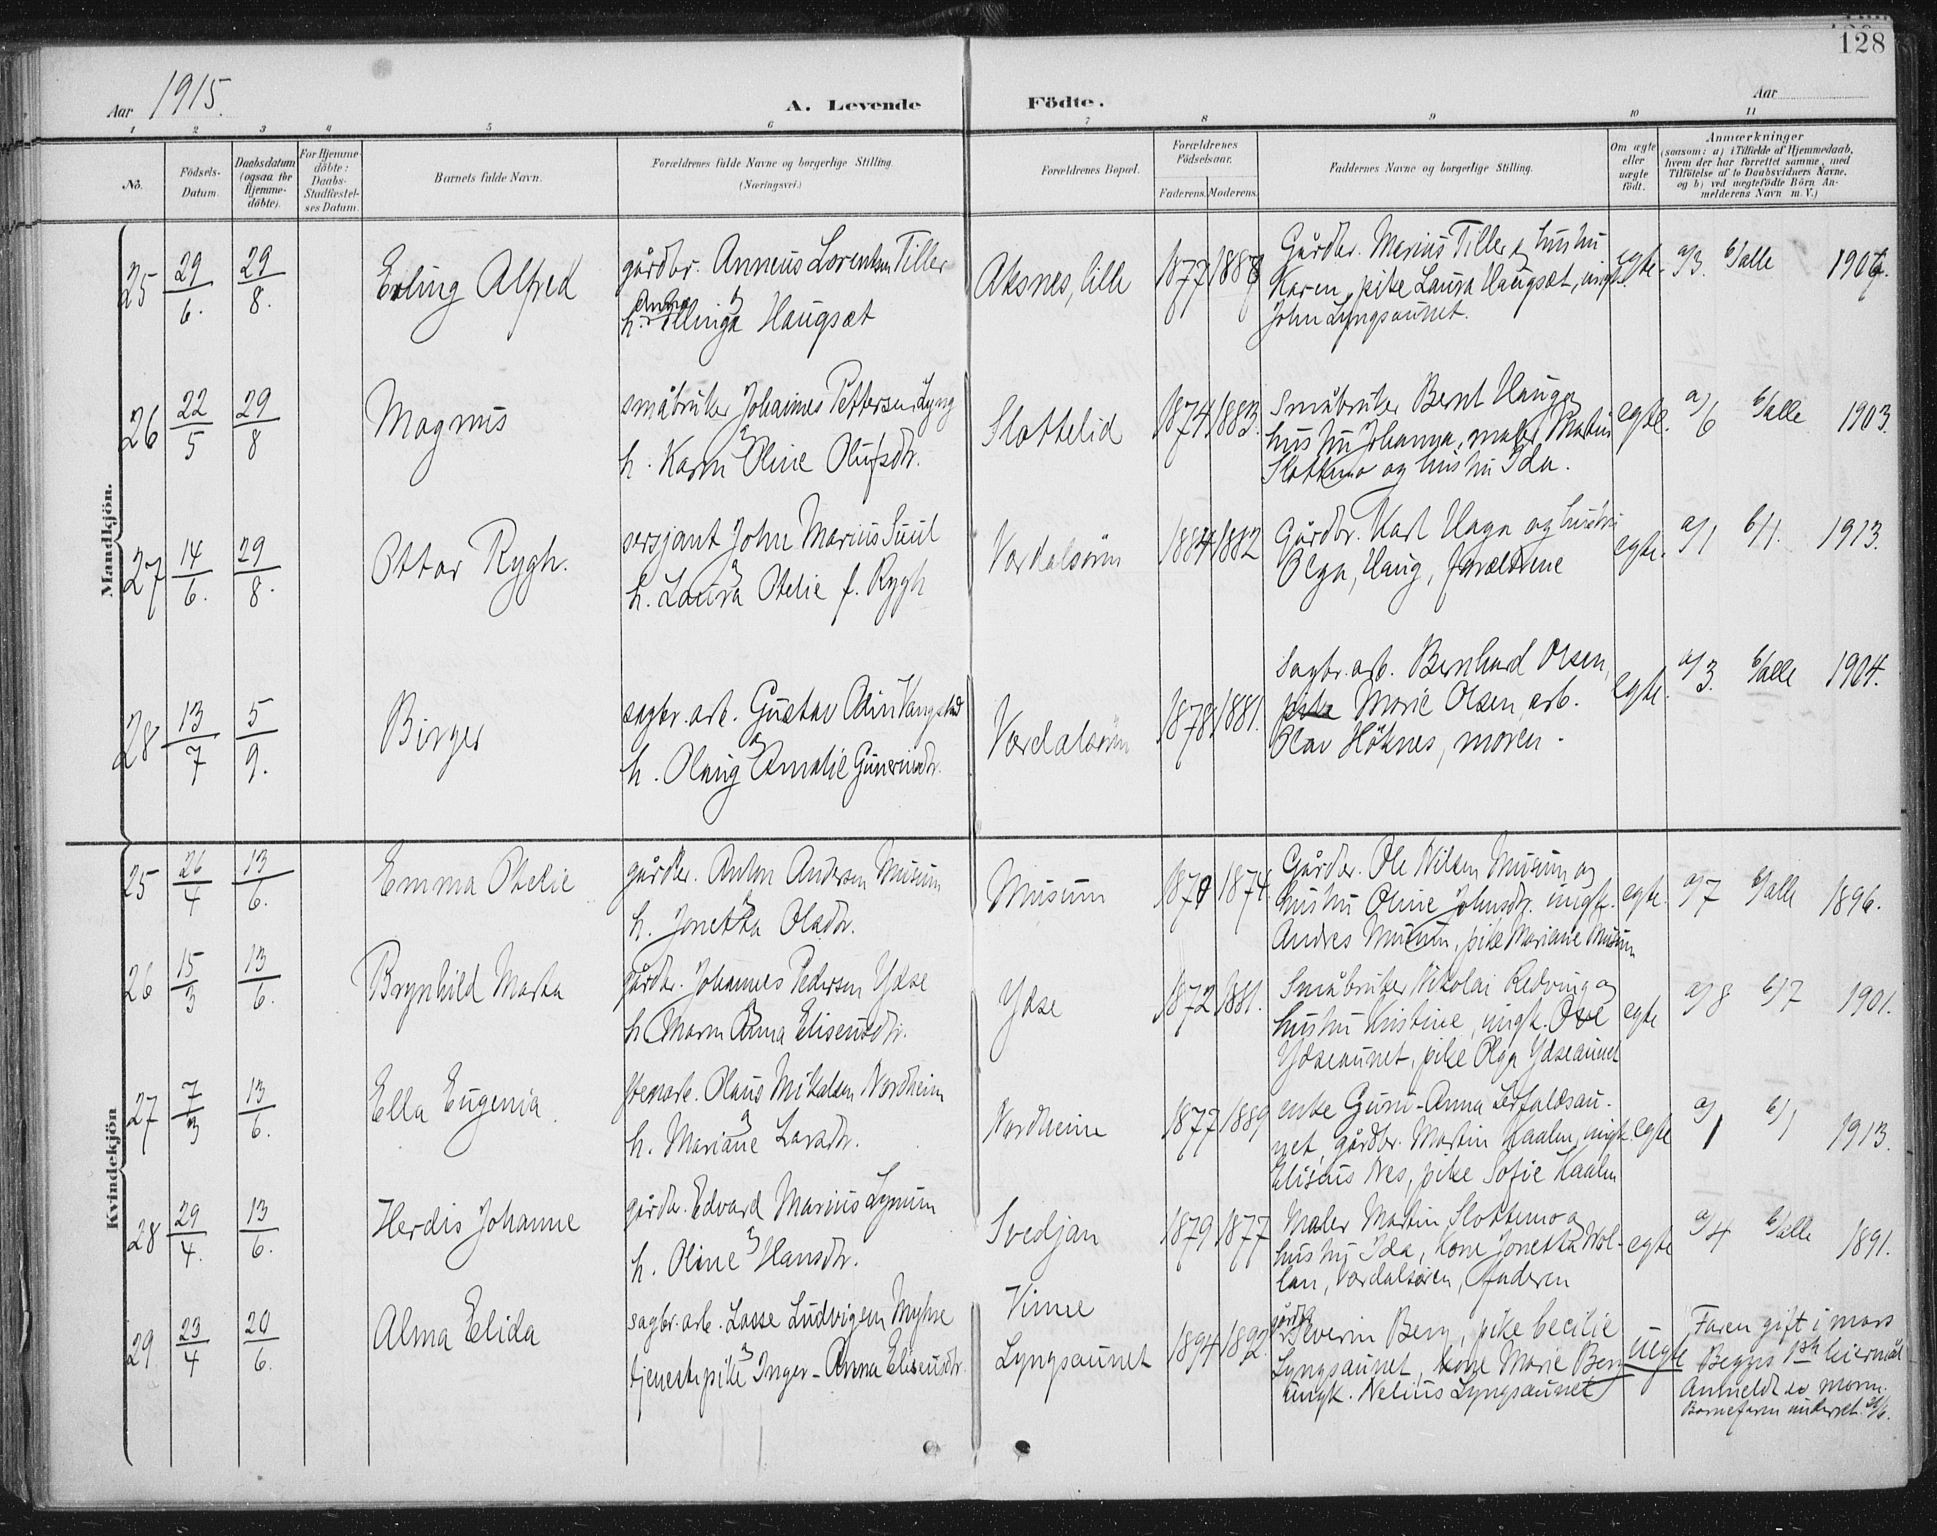 128
Aar 1915.
A. Levende Födte.
Aar
1 2 3 4 5 6 7 8 9 10 11
No.
Födsels-Datum.
Daabsdatum (ogsaa for Hjemme-döbte).
For Hjemme-döbte: Daabs-Stadfæstelses Datum.
Barnets fulde Navn.
Forældrenes fulde Navne og borgerlige Stilling.
(Næringsvei.)
Forældrenes Bopæl.
Forældrenes Födselsaar.
Faderens. Moderens.
Faddernes Navne og borgerlige Stilling.
Om ægte eller uægte födt.
Anmærkninger
(saasom: a) i Tilfælde af Hjemmedaab,
hvem der har forrettet samme, med
Tilföielse af to Daabsvidners Navne,
og b) ved uægtefödte Börn An-
melderens Navn m. V.)
Mandkjön.
25 29/6. 29/8. Erling Alfred
gårdbr. Anneus Lorentsen Tiller
h. Anna Ellinga Haugsæt
Aksnes, lille 1877 1888
Gårdbr. Marius Tiller og hustru
Karen, pike Laura Haugsæt, ungk.
John Lyngsaunet.
egte. a/3. b/alle
26 22/5 29/8 Magnus
småbruker Johannes Pettersen Lyng
h. Karen Oline Olufsdr.
Slottelid 1874 1883.
Småbruker Bernt Hauga
hustru Johanna, maler Martin
Slottemo og hustru Ida.
egte. a/6 b/alle 1903.
27 14/6. 29/8. Ottar Rygh.
sersjant John Marius Suul
h. Laura Otelie f. Rygh
Værdalsören 1884 1882
Gårdbr. Karl Haga og hustru
Olga, Haug, forældrene
egte. a/1 b/1. 1913.
28 13/7 5/9. Birger
sagbr. arb. Gustav Odin Vangstad
h. Olaug Amalie
Værdalsören 1878 1881.
Sagbr. arb. Bernhard Olsen,
pike Marie Olsen, arb.
Olav Höknes, moren.
egte. a/3. b/alle 1904.
Kvindekjön
25 26/4 13/6. Emma Otelie
gårdbr. Anton Andersen Musum
h. Jonetta Olsdr.
Musum 1874.
Gårdbr. Ole Nilsen Musum og
hustru Oline Johnsdr. ungk.
Andres Musum, pike Mariane Musum
egte. a/7 b/alle 1896.
26 15/3 13/6. Brynhild Marta
gårdbr. Johannes Pedersen Ydse
h. Maren Anna Eliseusdr.
Ydse 1872 1881.
Småbruker Nikolai Redving og
hustru Kristine, ungk. Ove
Ydseaunet, pike Olga Ydseaunet
egte a/8 b/7 1901.
27 7/3 13/6. Ella Eugenia
stenarb. Olaus Mikalsen Nordheim
h. Mariane Larsdr.
Nordheim 1877 1889
enke Guru-Anna Lerfaldsau-
net, gårdbr. Martin Kaalen, ungk.
Eliseus Nes, pike Sofie Kaalen
egte a/1 b/1 1913.
28 29/4. 13/6. Herdis Johanne
gårdbr. Edvard Marius Lynum
h. Oline Hansdr.
Svedjan 1879 1877
Maler Martin Slottemo og
hustru Ida, kone Jonetta Wol-
lan, Værdalsören, faderen
egte a/4 b/alle 1891.
29 23/4 20/6. Alma Elida
sagbr. arb. Lasse Ludvigsen Myhre
tjenestepike Inger-Anna Eliseusdr.
Vinne
Lyngsaunet 1894 1892.
gårdbr. Severin Berg, pike Cecilie
Lyngsaunet, kone Marie Berg
ungk. Nelius Lyngsaunet
uegte
Faren gift i mars
Begges 1ste leiermål
Anmeldt av moren.
Barnefaren underret.